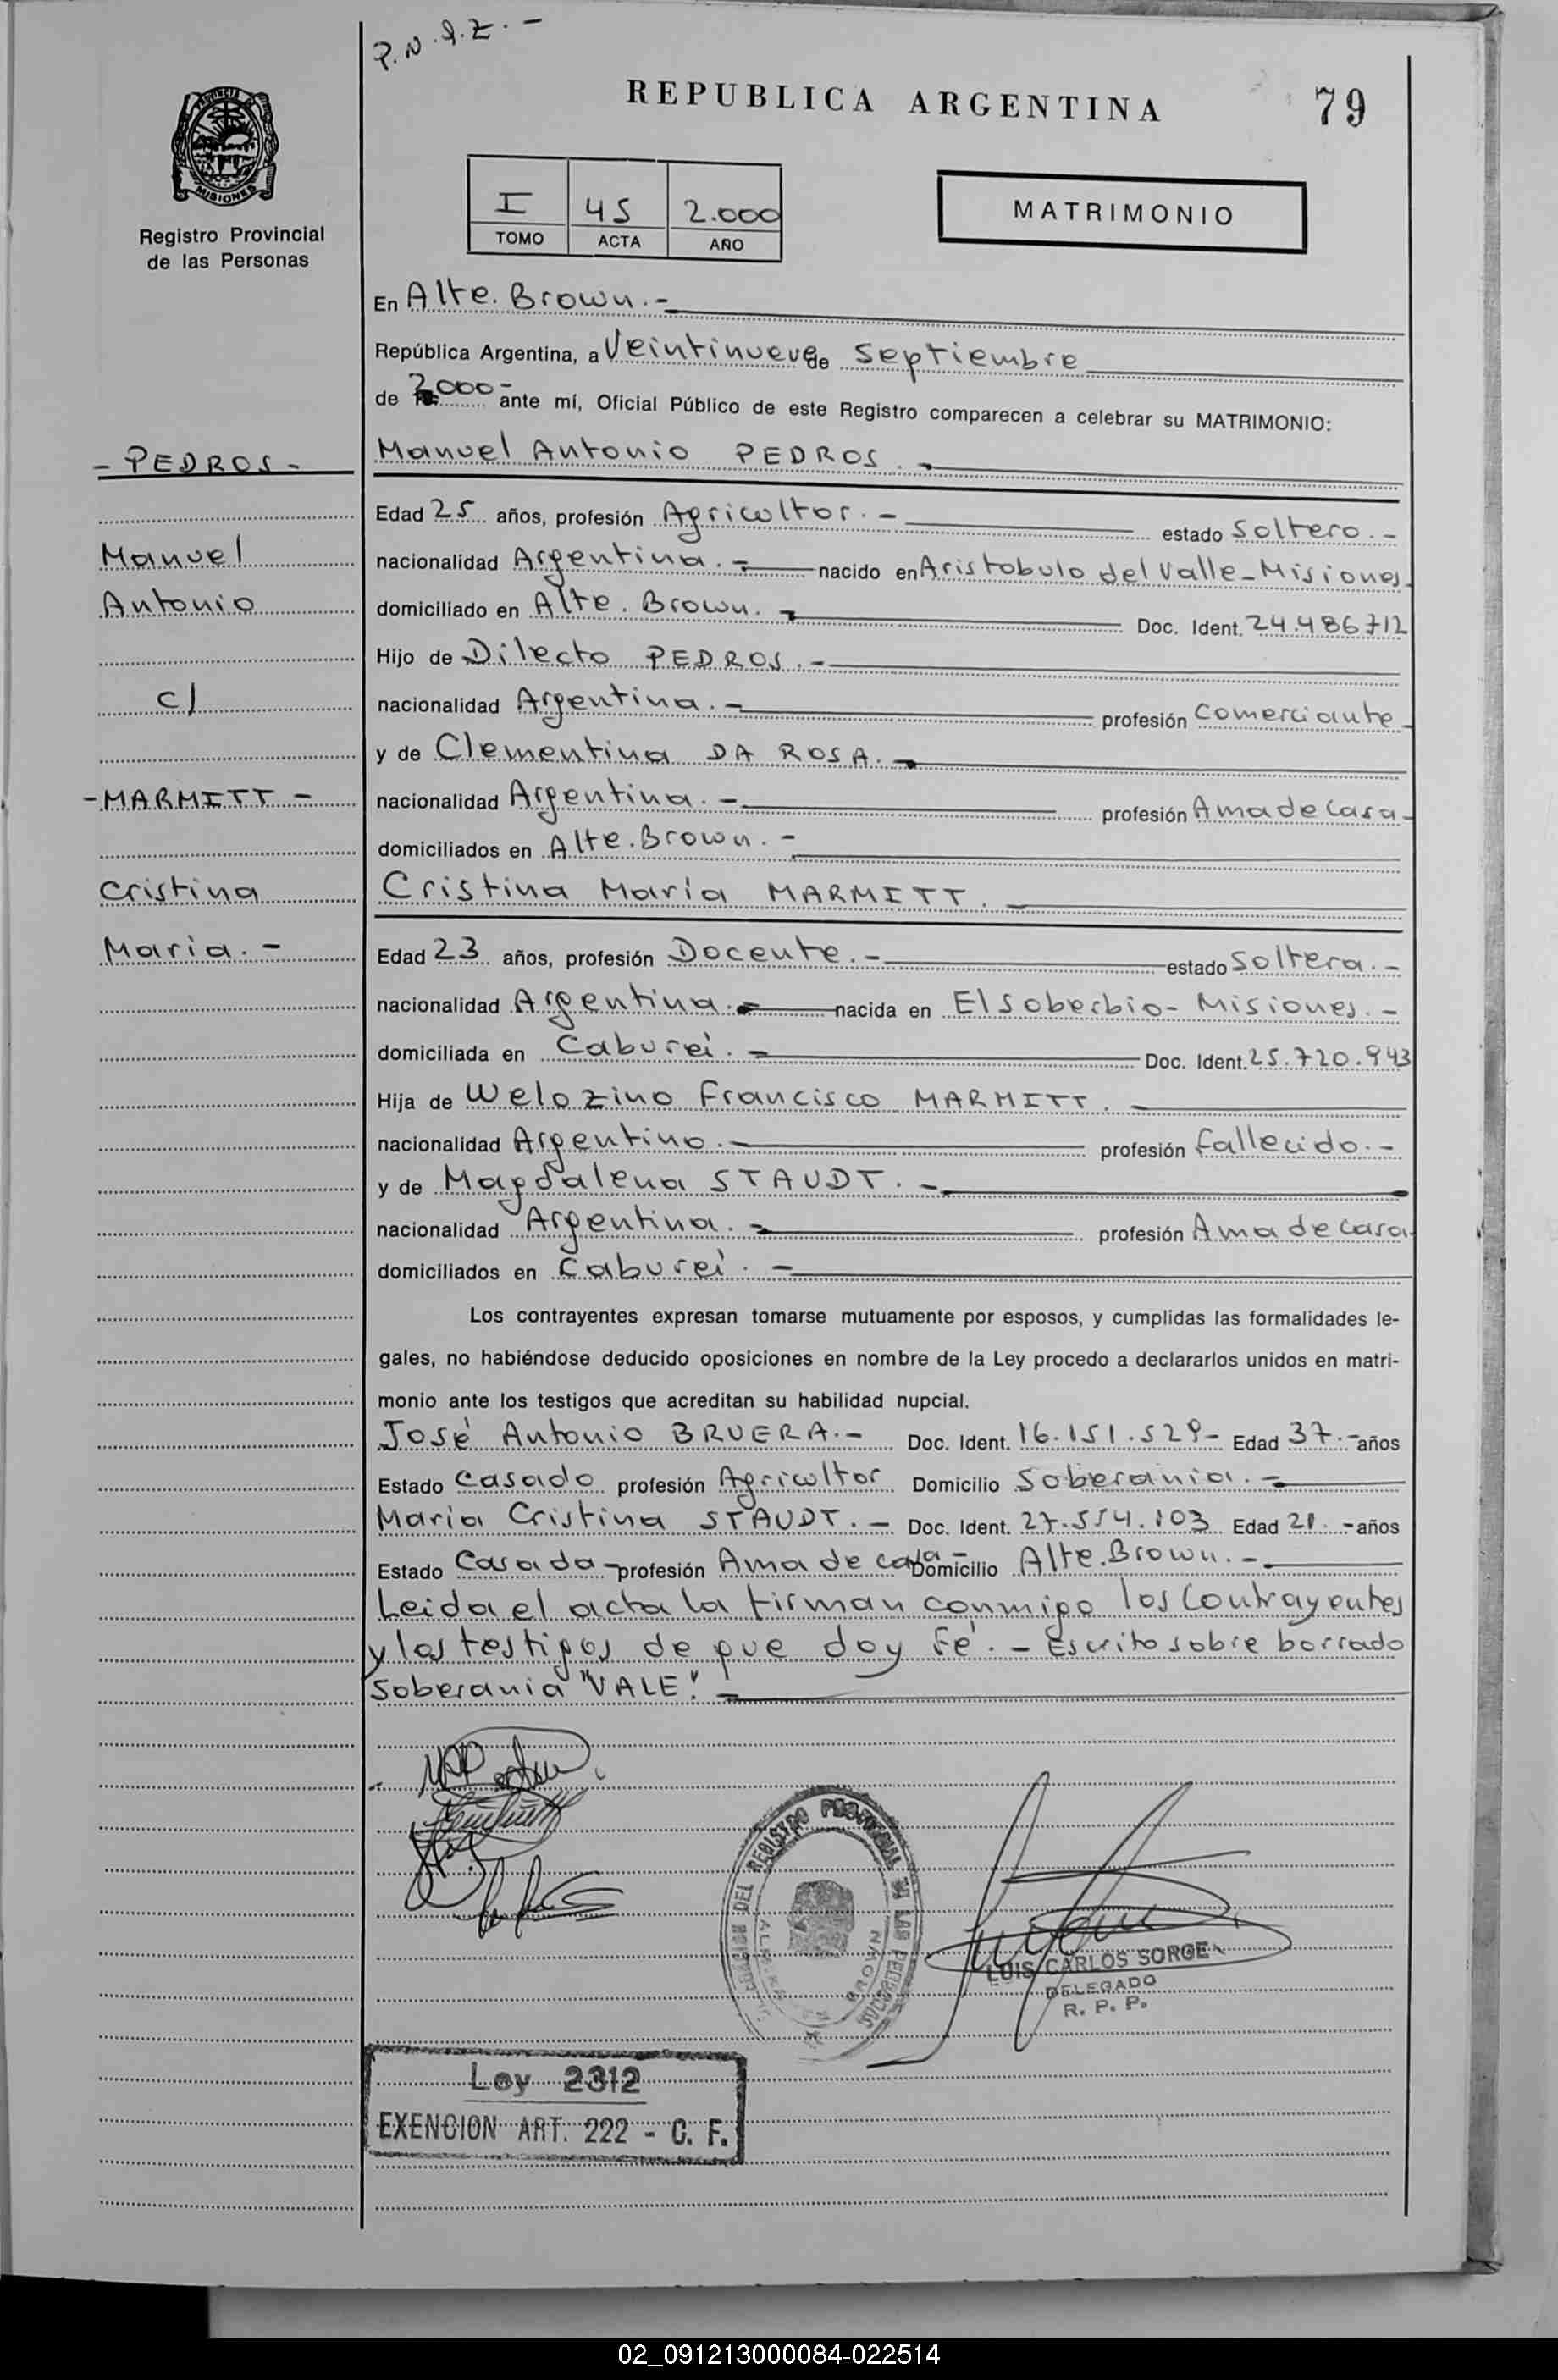 P.N.I.Z.-
REPUBLICA ARGENTINA
79
PROVINCIA DE
MISIONES
Registro Provincial
de las Personas
I 45 2.000
TOMO ACTA AÑO
MATRIMONIO
En Alte. Brown.-
República Argentina, a Veintinueve de Septiembre
de 2000- ante mí, Oficial Público de este Registro comparecen a celebrar su MATRIMONIO:
- PEDROS -
Manuel Antonio PEDROS.-
Edad 25 años, profesión Agricultor.- estado Soltero.-
Manuel
nacionalidad Argentina.- nacido en Aristobulo del Valle-Misiones
Antonio
domiciliado en Alte. Brown.- Doc. Ident. 24.486712
Hijo de Dilecto PEDROS.-
c/
nacionalidad Argentina.- profesión Comerciante
y de Clementina DA ROSA.-
- MARMITT -
nacionalidad Argentina.- profesión Ama de Casa-
domiciliados en Alte. Brown.-
Cristina
Cristina María MARMITT.-
Maria.-
Edad 23 años, profesión Docente.- estado Soltera.-
nacionalidad Argentina.- nacida en El Soberbio- Misiones.-
domiciliada en Caburei.- Doc. Ident. 25.720.943
Hija de Welozino Francisco MARMITT.-
nacionalidad Argentino.- profesión fallecido.-
y de Magdalena STAUDT.-
nacionalidad Argentina.- profesión Ama de casa-
domiciliados en Caburei.-
Los contrayentes expresan tomarse mutuamente por esposos, y cumplidas las formalidades le-
gales, no habiéndose deducido oposiciones en nombre de la Ley procedo a declararlos unidos en matri-
monio ante los testigos que acreditan su habilidad nupcial.
José Antonio BRUERA.- Doc. Ident. 16.151.529- Edad 37.- años
Estado Casado profesión Agricultor Domicilio Soberania.-
María Cristina STAUDT.- Doc. Ident. 27.554.103 Edad 21.- años
Estado Casada- profesión Ama de casa- Domicilio Alte. Brown.-
Leida el acta la firman conmigo los Contrayentes
y los testigos de que doy Fé.- Escrito sobre borrado
Soberania "VALE".-
DEL REGISTRO PROVINCIAL DE LAS PERSONAS
BROWN
LUIS CARLOS SORGE
DELEGADO
R. P. P.
Ley 2312
EXENCION ART. 222 - C. F.
02_091213000084-022514